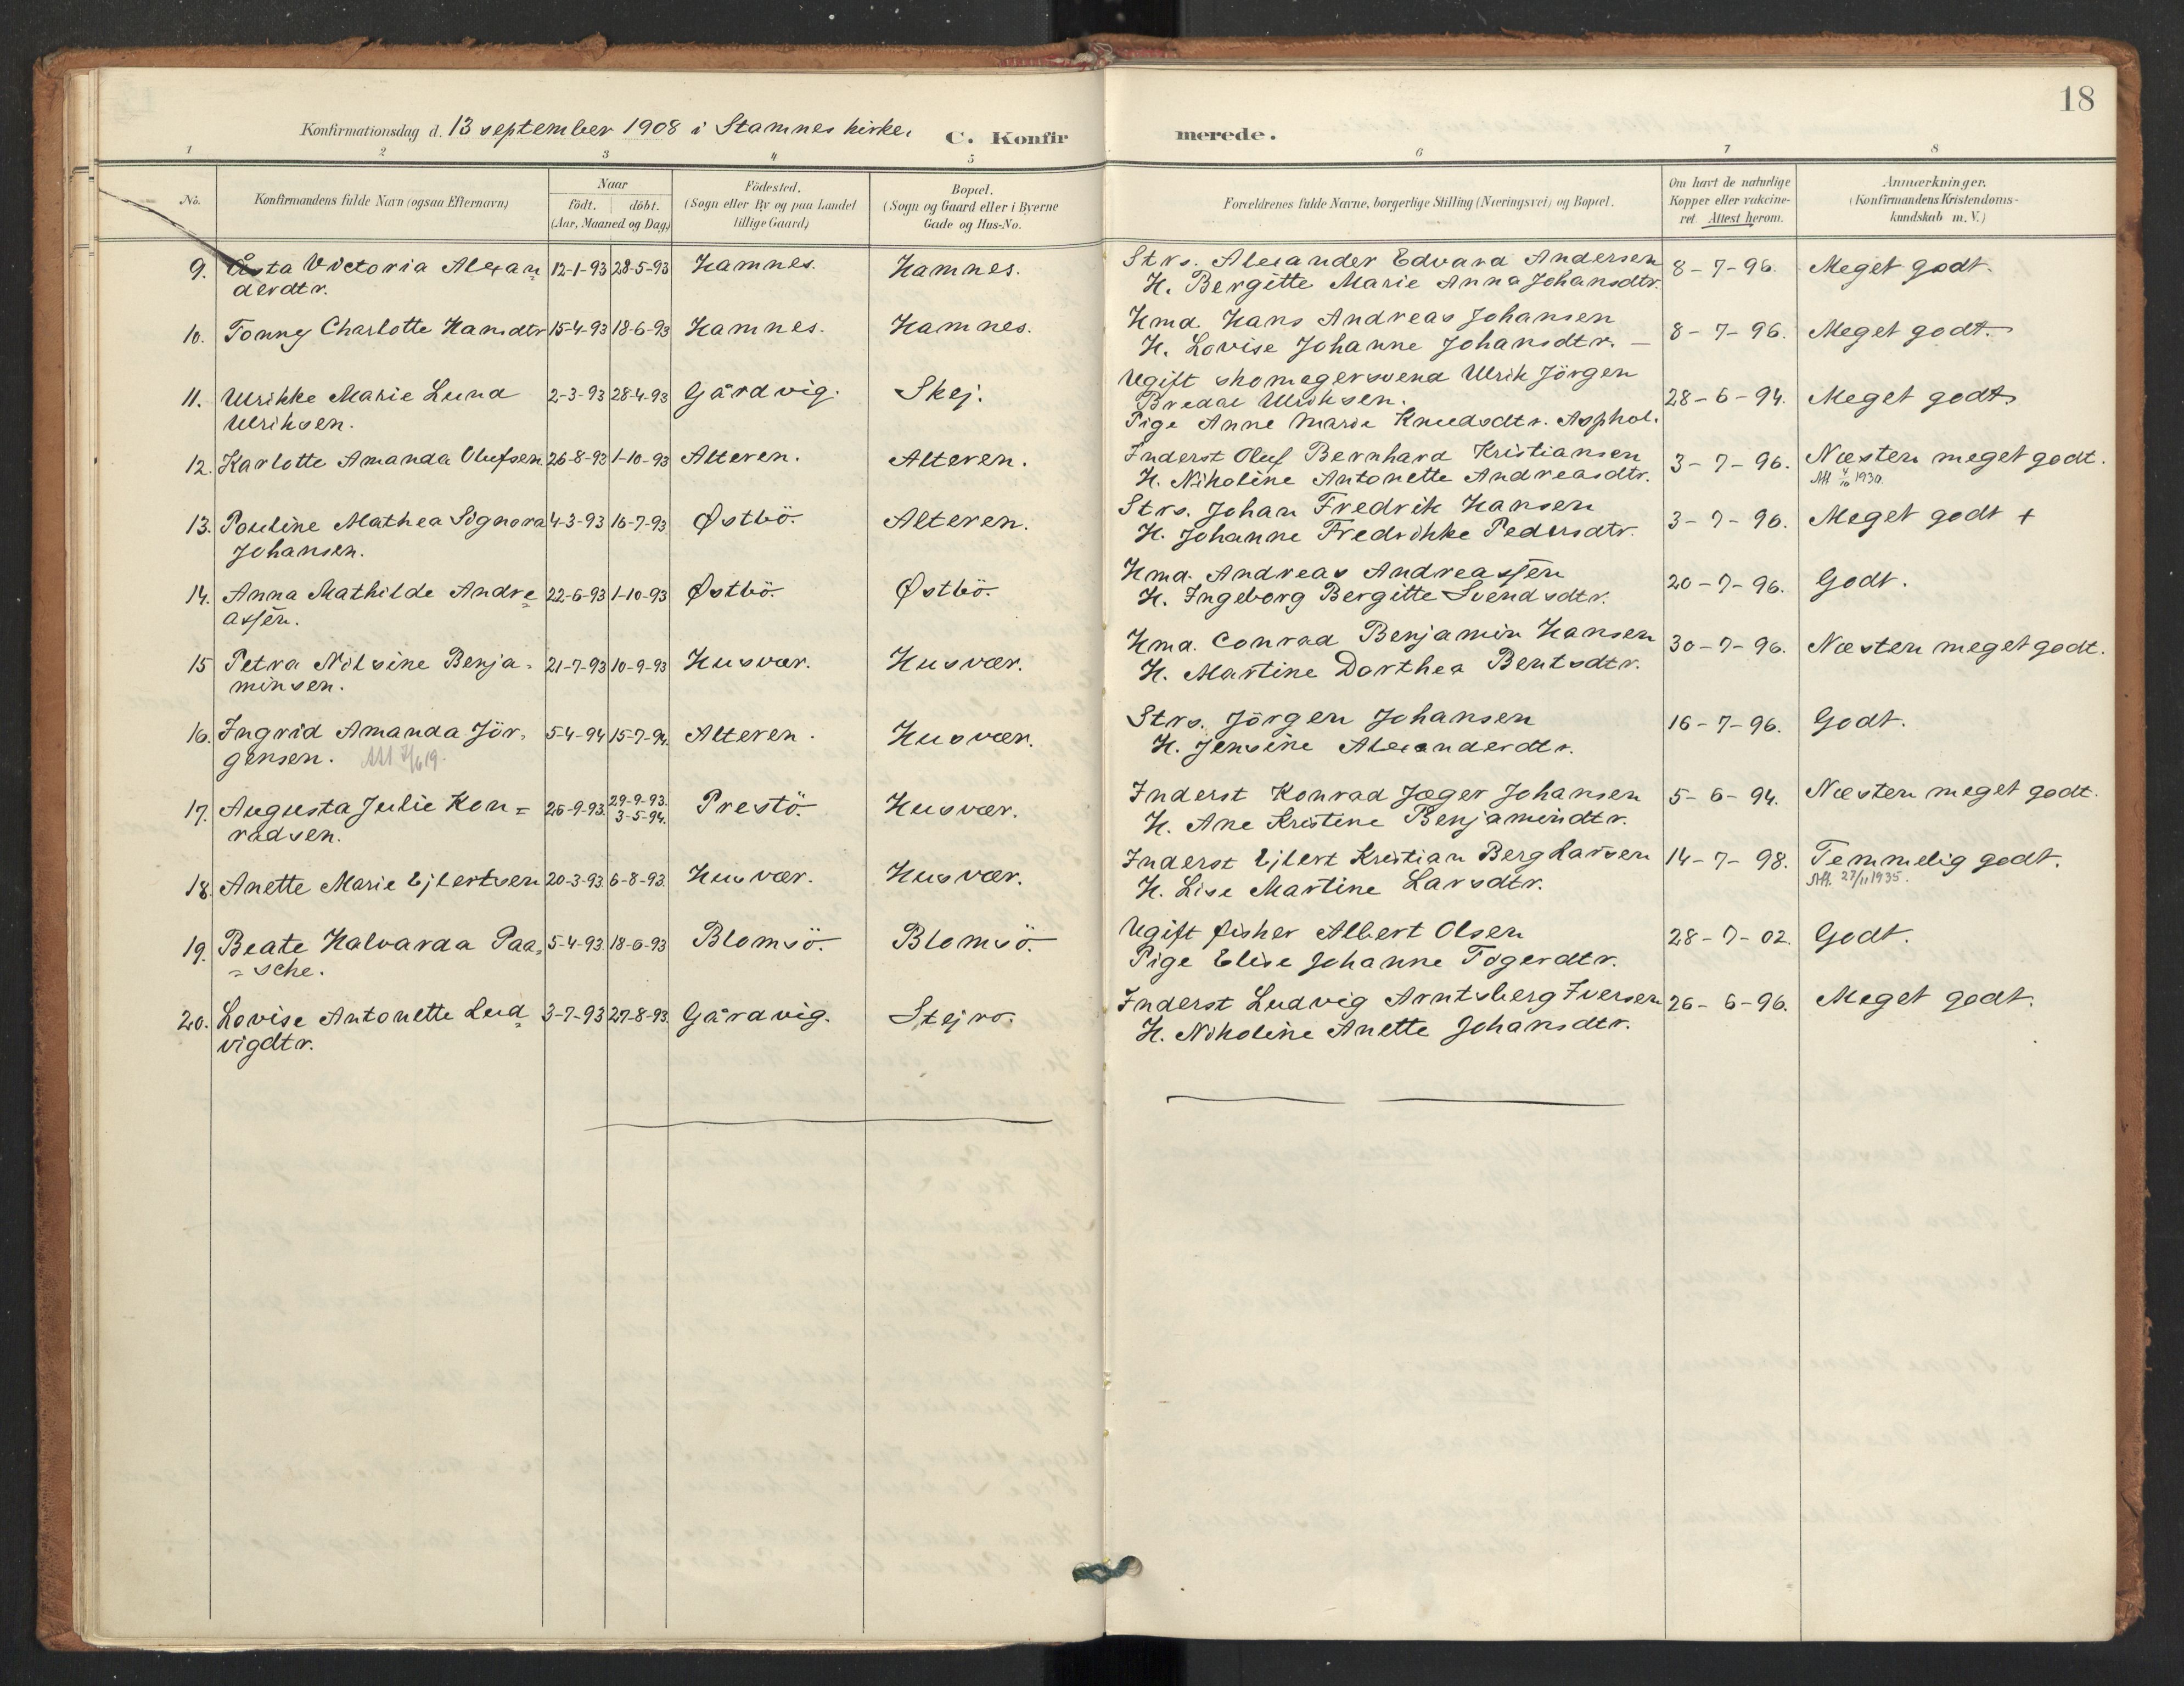 18
Konfirmationsdag d. 13 september 1908 i Stamnes kirke. C. Konfirmerede.
1 2 3 4 5 6 7 8
No.
Konfirmandens fulde Navn (ogsaa Efternavn)
Naar
födt. döbt.
(Aar, Maaned og Dag)
Födested.
(Sogn eller By og paa Landet
tillige Gaard)
Bopæl.
(Sogn og Gaard eller i Byerne
Gade og Hus-No.
Forældrenes fulde Navne, borgerlige Stilling (Næringsvei) og Bopæl.
Om havt de naturlige
Kopper eller vakcine-
ret. Attest herom.
Anmærkninger.
(Konfirmandens Kristendoms-
kundskab m. V.)
9. Åsta Victoria Alexan= 12-1-93 28-5-93 Hamnes. Hamnes. Strs. Alexander Edvard Andersen 8-7-96. Meget godt.
derdtr. H. Bergitte Marie Anna Johansdtr.
10. Tonny Charlotte Hansdtr 15-4-93 18-6-93 Hamnes. Hamnes. Hmd. Hans Andreas Johansen 8-7-96. Meget godt.
H. Lovise Johanne Johansdtr. —
11. Ulrikke Marie Lund 2-3-93 28-4-93 Gårdvig. Skej. Ugift skomagersvend Ulrik Jörgen 28-6-94. Meget godt
Ulriksen. Bredal Ulriksen.
Pige Anne Marie Knudsdtr. Asphol.
12. Karlotte Amanda Olufsen 26-8-93 1-10-93 Alteren. Alteren. Inderst Oluf Bernhard Kristiansen 3-7-96. Næsten meget godt.
H. Nikoline Antonette Andreasdtr. Att. 4/10 1930.
13. Pouline Mathea Signora 4-3-93 16-7-93 Østbö. Alteren. Strs. Johan Fredrik Hansen 3-7-96. Meget godt +
Johansen. H. Johanne Fredrikke Pedersdtr.
14. Anna Mathilde Andre= 22-6-93 1-10-93 Østbö. Østbö. Hmd. Andreas Andreassen 20-7-96. Godt.
assen. H. Ingeborg Bergitte Svendsdtr.
15 Petra Nilsine Benja- 21-7-93 10-9-93 Husvær. Husvær. Hmd. Conrad Benjamin Hansen 30-7-96. Næsten meget godt.
minsen. H. Martine Dorthea Bentsdtr.
16. Ingrid Amanda Jör- 5-4-94 15-7-94. Alteren. Husvær. Strs. Jörgen Johansen 16-7-96. Godt.
gensen. H. Jensine Alexanderdtr.
17. Augusta Julie Kon= 26-9-93. 29-9-93. 3-5-94. Prestö. Husvær. Inderst Konrad Jæger Johansen 5-6-94. Næsten meget godt.
radsen. H. Ane Kristine Benjamindtr.
18. Anette Marie Ejlertsen 20-3-93. 6-8-93. Husvær. Husvær. Inderst Ejlert Kristian Berg Larsen 14-7-98. Temmelig godt.
H. Lise Martine Larsdtr. Att. 27/11 1935.
19. Beate Halvarda Paa= 5-4-93. 18-6-93 Blomsö. Blomsö. Ugift fisker Albert Olsen 28-7-02. Godt.
=sche. Pige Elise Johanne Tögerdtr.
20. Lovise Antonette Lud= 3-7-93 27-8-93. Gårdvig. Stejro. Inderst Ludvig Arntsberg Iversen 26-6-96. Meget godt.
vigdtr. H. Nikoline Anette Johansdtr.